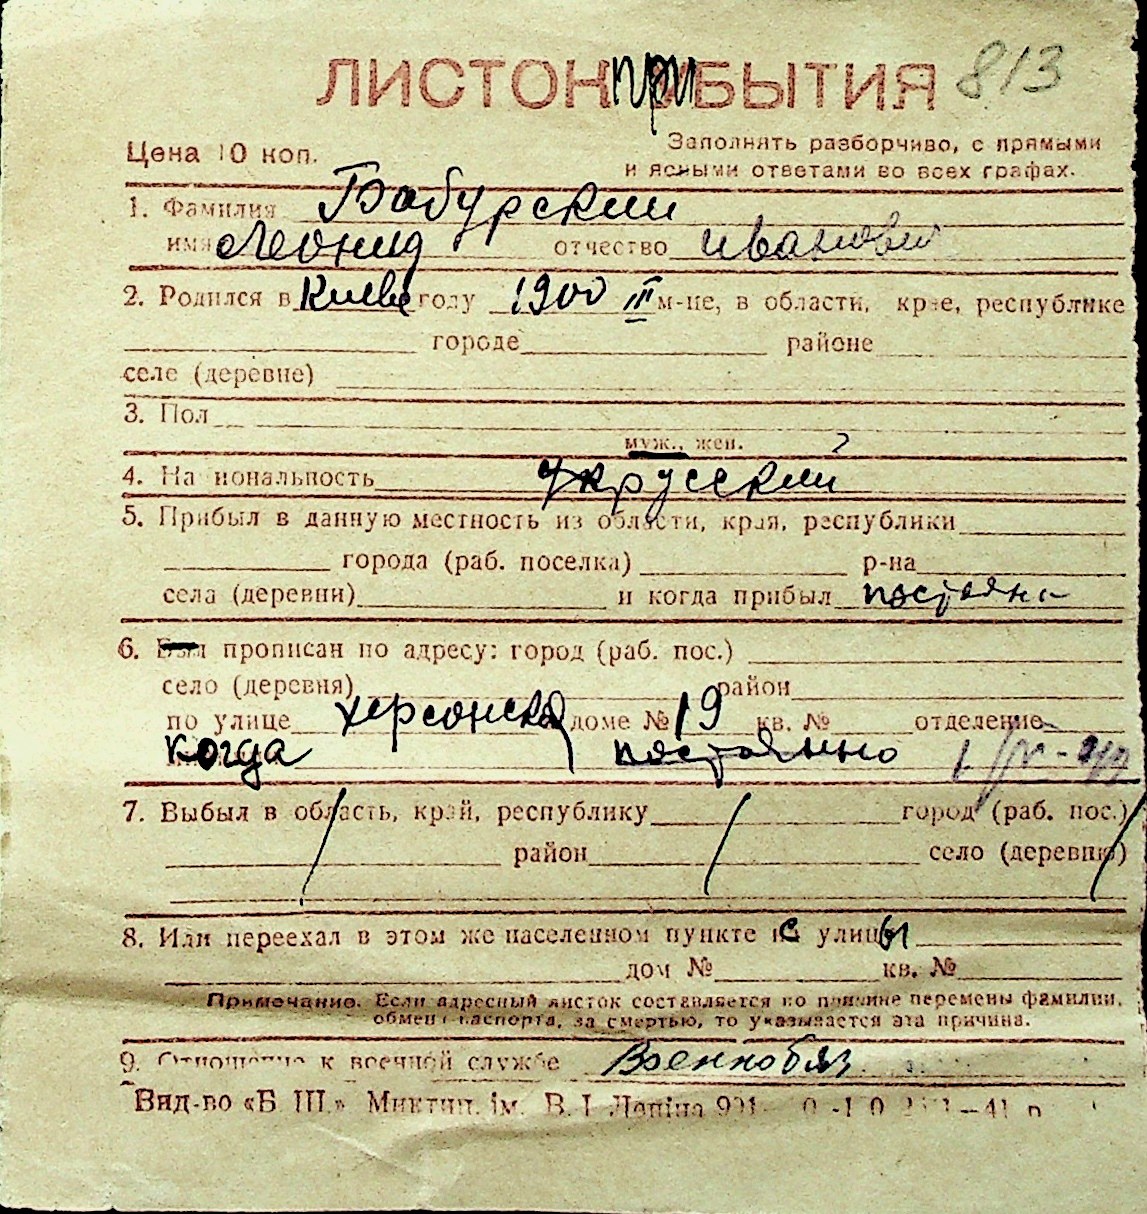 ЛИСТОК при БЫТИЯ 813
Цена 10 коп. Заполнять разборчиво, с прямыми
и ясными ответами во всех графах.
1. Фамилия Бабурский
имя Леонид отчество Иванович
2. Родился в Киеве году 1900 III м-це, в области, крае, республике
городе районе
селе (деревне)
3. Пол
муж., жен.
4. Национальность русский
5. Прибыл в данную местность из области, края, республики
города (раб. поселка) р-на
села (деревни) и когда прибыл постоянн
6. Был прописан по адресу: город (раб. пос.)
село (деревня) район
по улице Херсонская доме № 19 кв. № отделение
когда постоянно
7. Выбыл в область, край, республику город (раб. пос.)
район село (деревню)
8. Или переехал в этом же населенном пункте с улицы
дом № кв. №
Примечание. Если адресный листок составляется по причине перемены фамилии,
обмена паспорта, за смертью, то указывается эта причина.
9. Отношение к военной службе Военнобяз.
Вид-во «Б. Ш.» Миктип. ім. В. І. Леніна